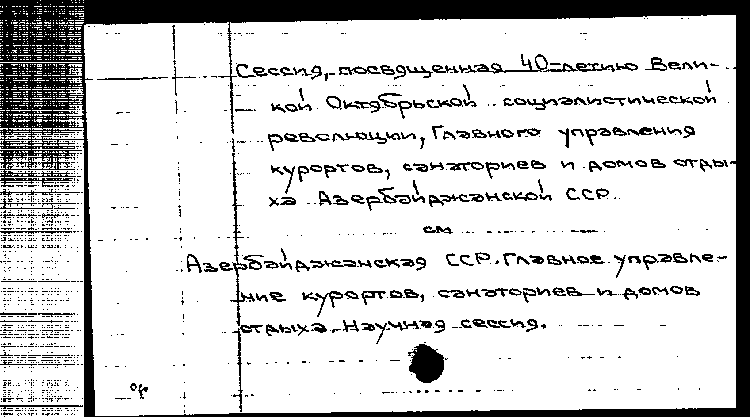 Сессия, посвященная 40-летию Вели-
кой Октябрьской социалистической
революции, Главного управления
курортов, санаториев и домов отды-
ха Азербайджанской ССР.
см
Азербайджанская ССР. Главное управле-
ние курортов, санаториев и домов
отдыха. Научная сессия.